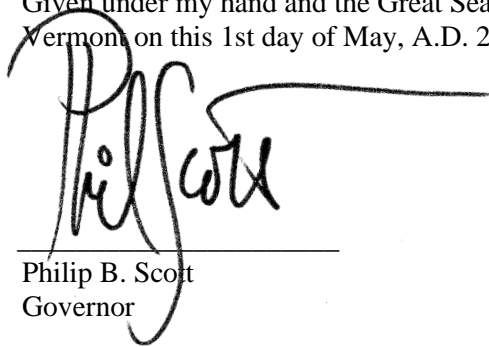 Given under my hand and the Great Sea
Vermont on this 1st day of May, A.D. 2
Phil Scott
Philip B. Scott
Governor